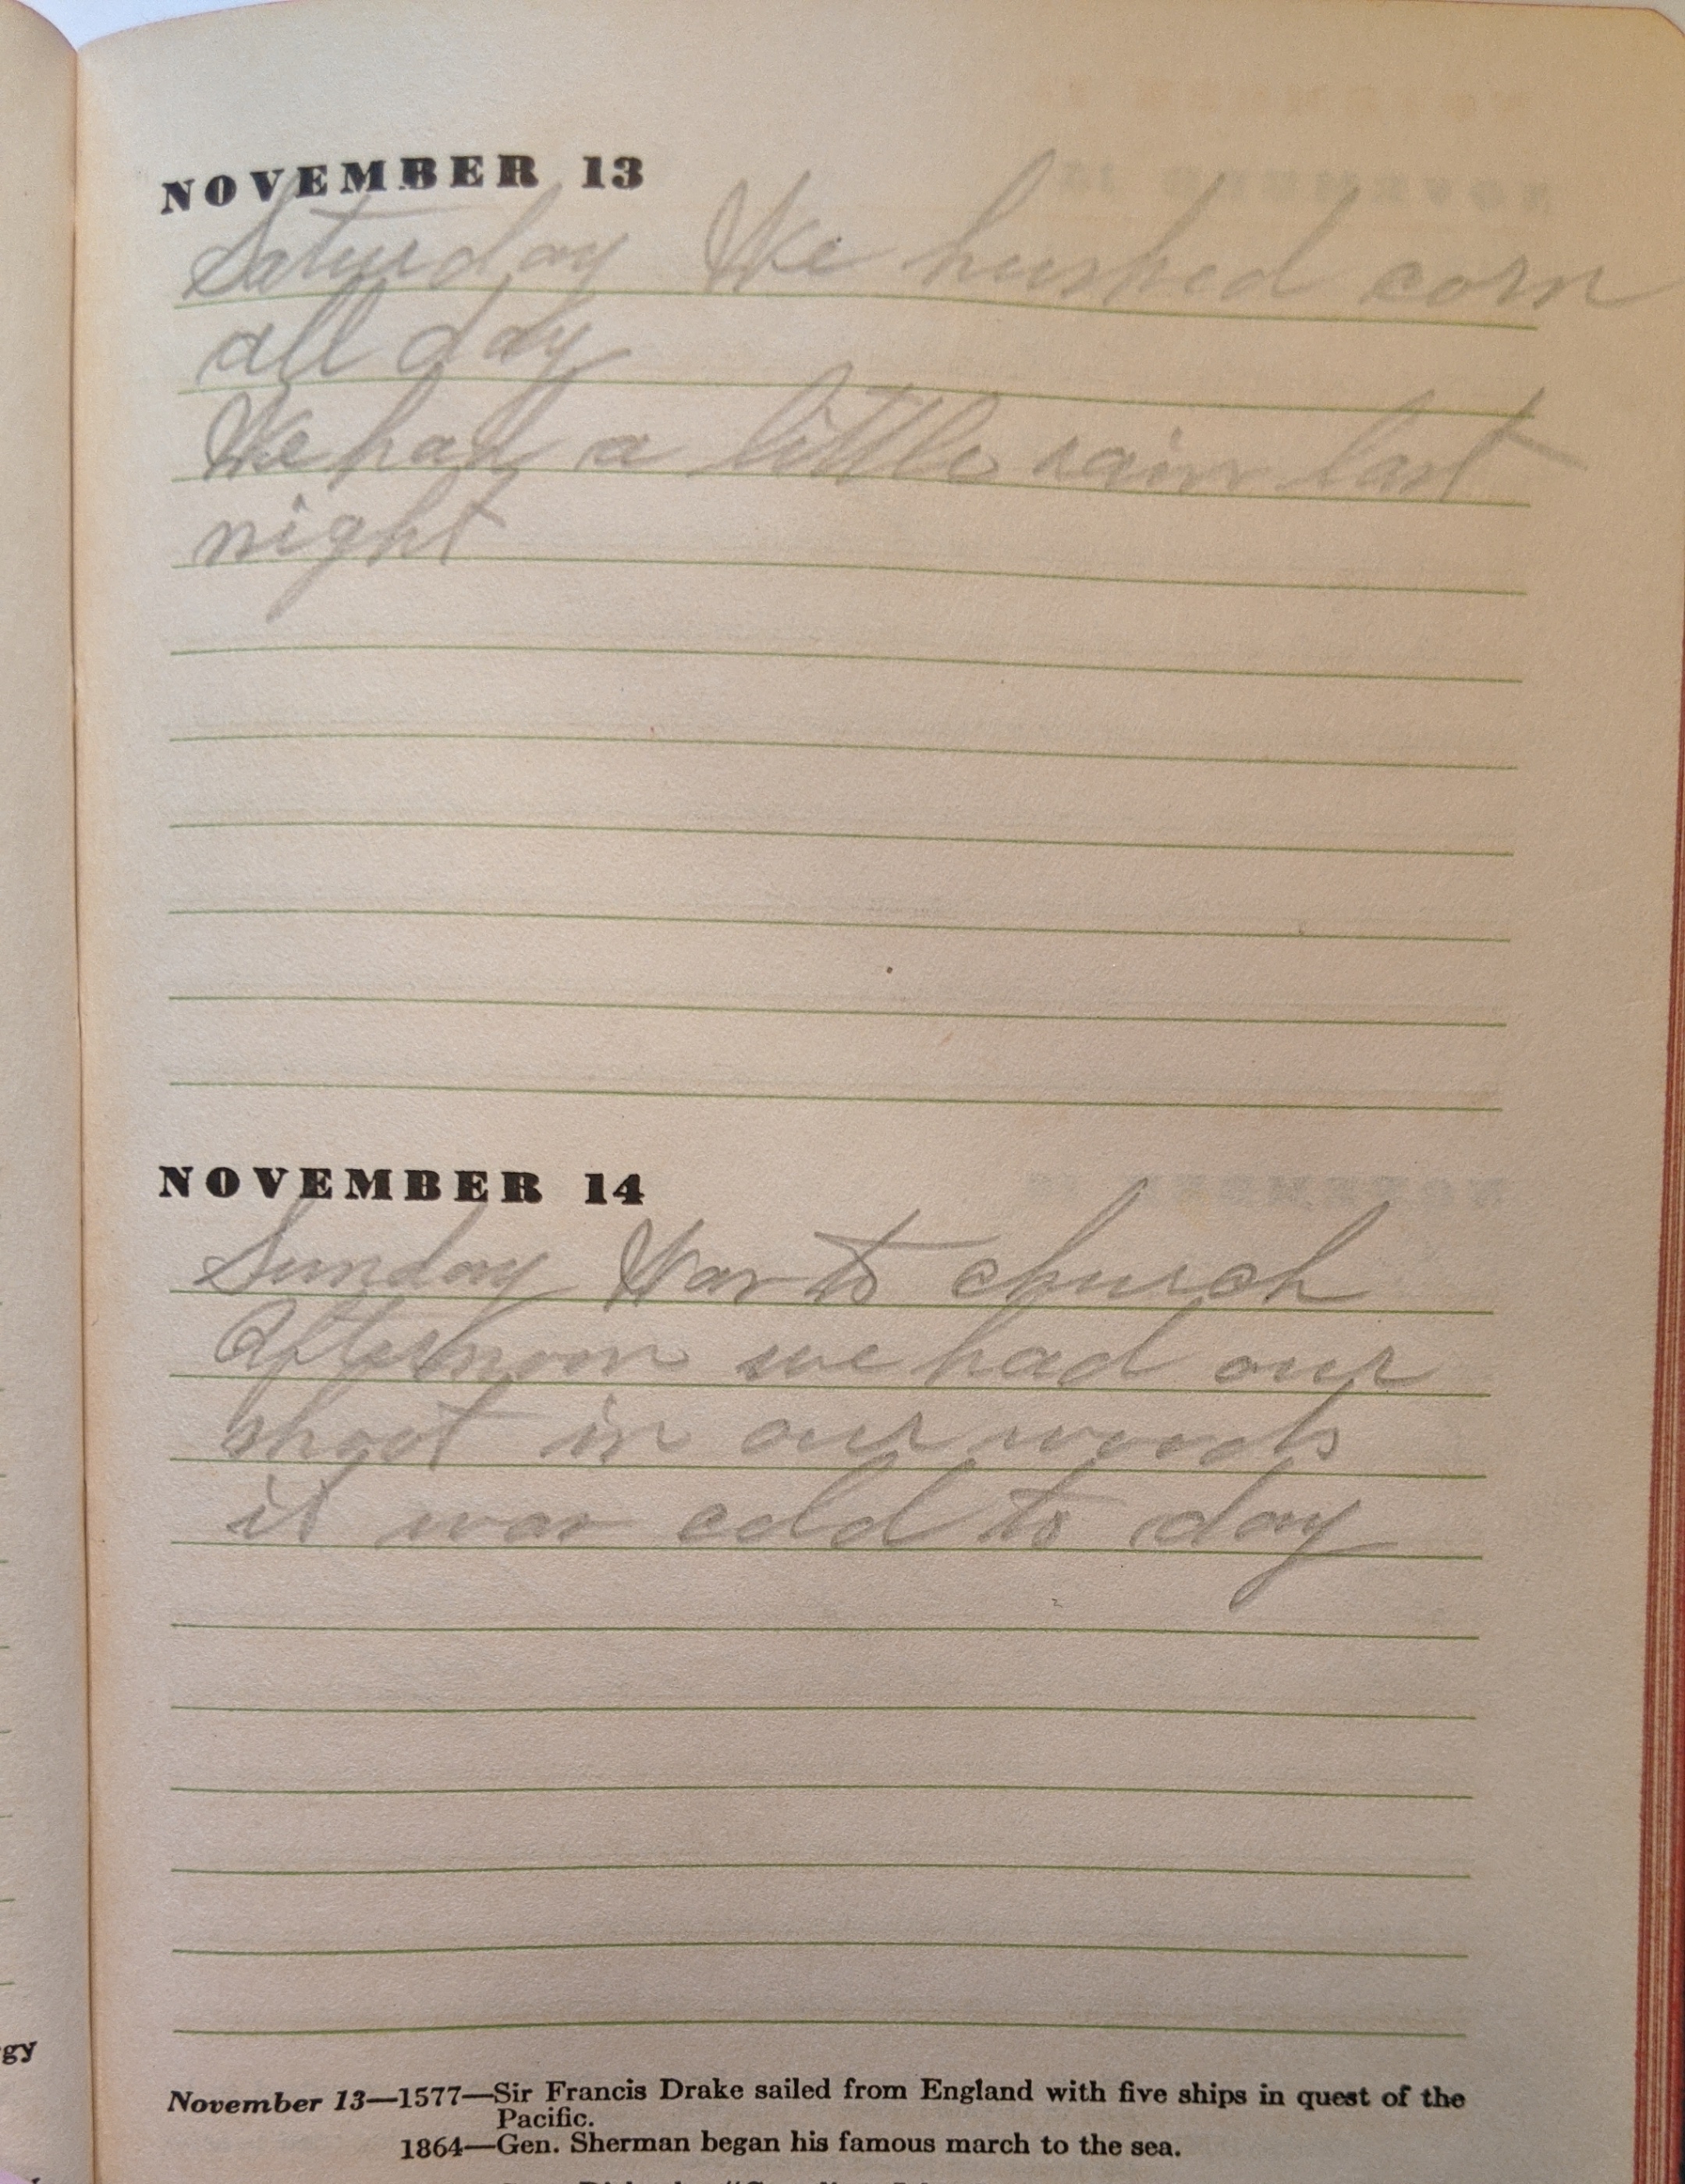 NOVEMBER 13
Saturday We husked corn
all day
We had a little rain last
night
NOVEMBER 14
Sunday Was to church
Afternoon we had our
shoot in our woods
it was cold to day
gy
November 13—1577—Sir Francis Drake sailed from England with five ships in quest of the
Pacific.
1864—Gen. Sherman began his famous march to the sea.